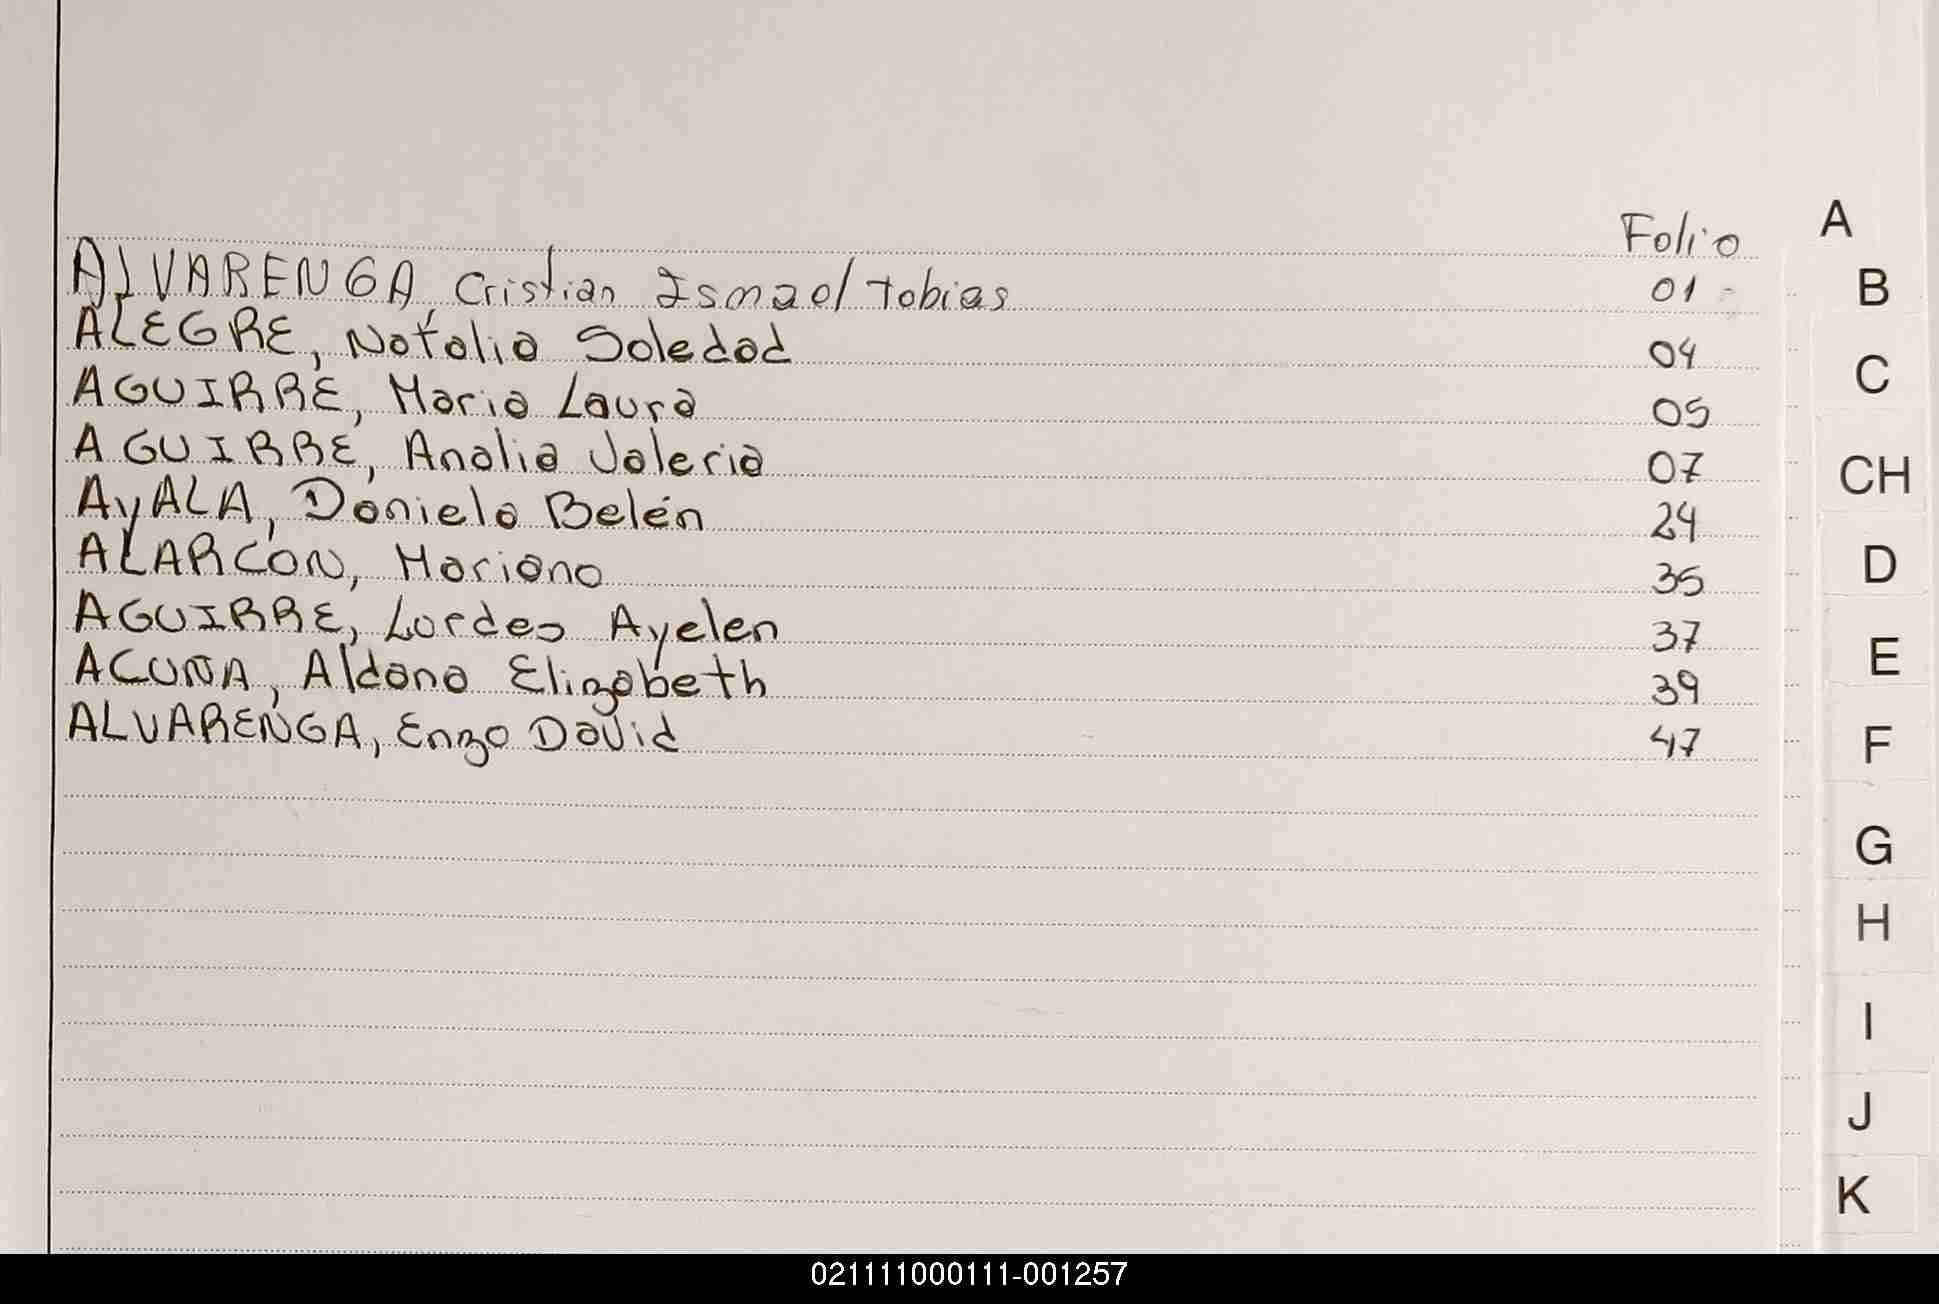 Folio
ALVARENGA, Cristian Ismael Tobias 01
ALEGRE, Natalia Soledad 04
AGUIRRE, Maria Laura 05
AGUIRRE, Analia Valeria 07
AyALA, Daniela Belén 24
ALARCÓN, Mariano 35
AGUIRRE, Lordes Ayelen 37
ACUÑA, Aldana Elizabeth 39
ALVARENGA, Enzo David 47
A
B
C
CH
D
E
F
G
H
I
J
K
021111000111-001257